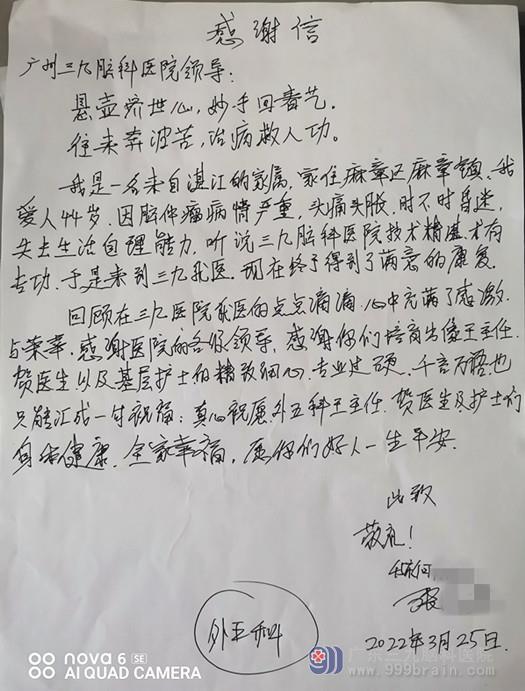 感谢信
广州三九脑科医院领导:
悬壶济世心,妙手回春艺。
往来奔波苦,治病救人功。
我是一名来自湛江的家属,家住麻章区麻章镇,我
爱人44岁,因脑伴瘤病情严重,头痛头胀,时不时昏迷,
失去生活自理能力,听说三九脑科医院技术精湛,术有
专功,于是来到三九就医。现在终于得到了满意的康复。
回顾在三九医院就医的点点滴滴,心中充满了感激
与荣幸,感谢医院的各级领导,感谢你们培育出像王主任、
贺医生以及基层护士的精致细心,专业过硬,千言万语也
只能汇成一付祝福:真心祝愿外五科王主任、贺医生及护士们
身体健康,全家幸福,愿你们好人一生平安。
此致
敬礼!
2022年3月25日.
外五科
nova 6 SE
AI QUAD CAMERA
广东三九脑科医院
www.999brain.com